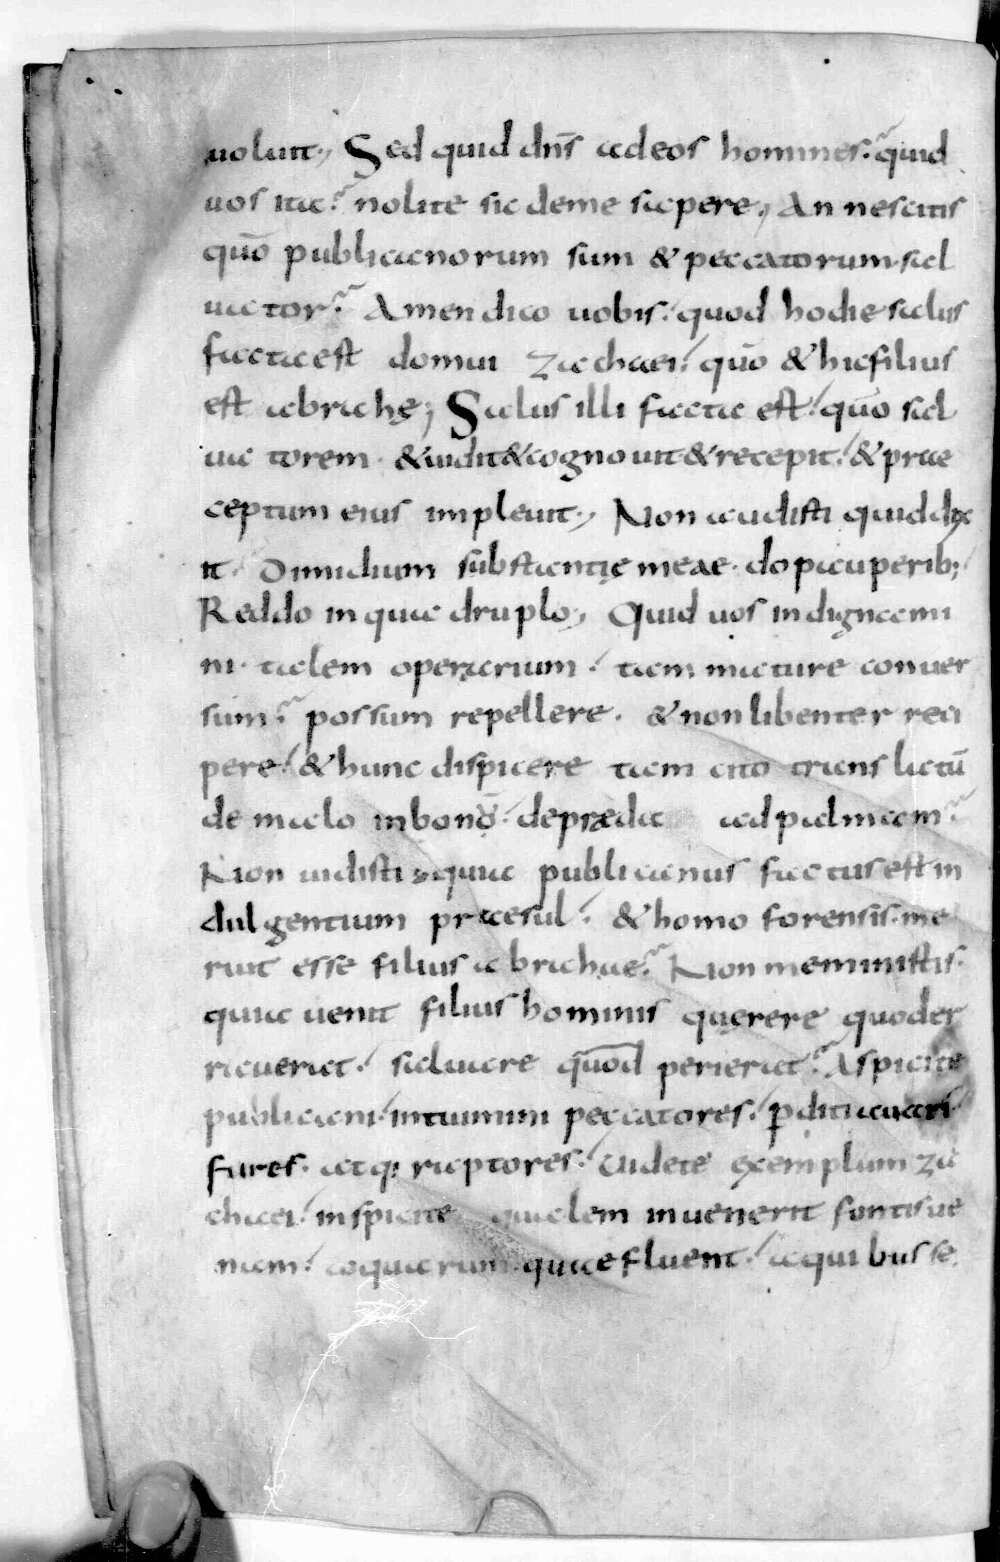 uoluit., Sed quid dn̄s adeos homines. quid
uos ita. nolite sic deme sapere., An nescitis
quō publicanorum sum & peccatorum sal
uator. Amen dico uobis. quod hodie salus
facta est domui zachaei. quō & hic filius
est abrahę; Salus illi facta est. quō sal
ua torem. & uidit & cognouit & recepit. & prae
ceptum eius impleuit., Non audisti quid dix
it. Dimidium substantię meae. do pauperib;
Reddo in qua druplo., Quid uos indignami
ni. talem operarium. tam mature conuer
sum. possum repellere. & non libenter reci
pere. & hunc dispicere tam cito transl̄atū
de malo in bonō. depreda ad palmam.
Non uidisti quia publicanus factus est in
dulgentium praesul. & homo forensis. me
ruit esse filius abrahae. Non meministis.
quia uenit filius hominis querere quod er
rauerat. saluare quod perierat. Aspicite
publicani. intuimini peccatores.
fures. atq; raptores. Uidete exemplum za
chaei. inspicite qualem inuenerit fontis ue
niam. aquarum quae fluent. aquibus se